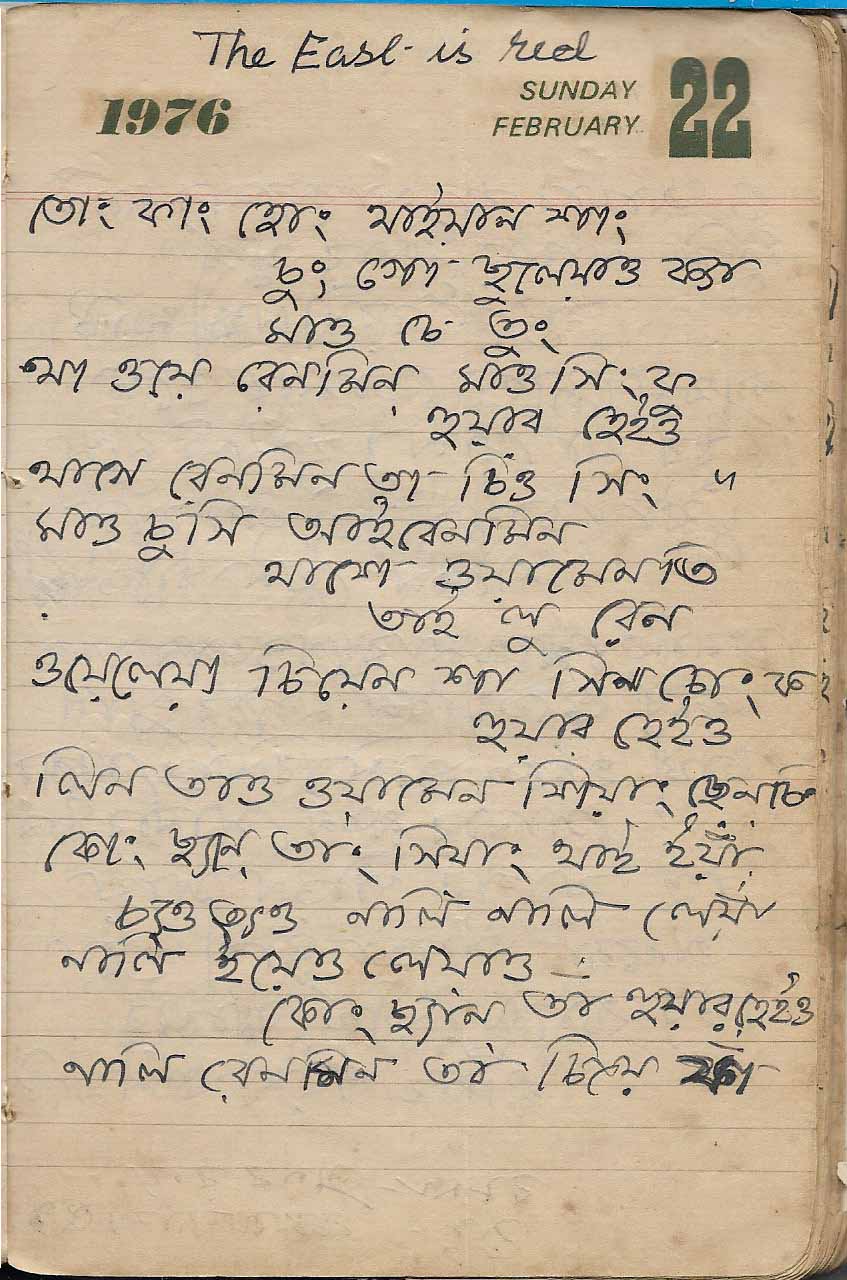 The East is red
1976 SUNDAY FEBRUARY 22
তোং ফাং হোং থাইয়ান শাং
চুং গো ছুলেয়াও ক্যা
মাও চে তুং
থা ওয়ে রেনমিন মাওসিং ফু
হুয়ার হেইও
থাসে রেনমিন তা চিও সিং ॥
মাও চুসি আইরেনমিন
থাযো ওয়ামেনতি
তাই লু রেন
ওয়েলেয়্যা চিয়েন শা সিন চোং
হুয়ার হেইও
লিন তাও ওয়ামেন ছেনচি
কোং ছ্যান তাং সিয়াং থাই ইয়াং
নালি নালি
নালি ইয়েও লেয়াও
কোং ছ্যান তা হুয়ার হেইও
নালি রেনমিন তা চিয়ে